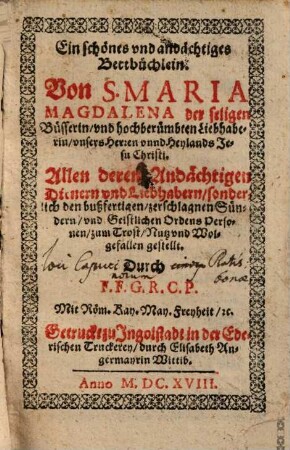 Ein schönes vnd andächtiges
Bettbüchlein.
Von S. MARIA
MAGDALENA der seligen
Büsserin/vnd hochberümbten Liebhabe-
rin/vnsers Herren vnnd Heylands Je-
su Christi.
Allen deren Andächtigen
Dienern vnd Liebhabern/sonder-
lich den bußfertigen/zerschlagnen Sün-
dern/vnd Geistlichen Ordens Perso-
nen/zum Trost/Nutz vnd Wol-
gefallen gestellt.
Durch
F. F. G. R. C. P.
Mit Röm. Kay. May. Freyheit/ꝛc.
Getruckt zu Ingolstadt in der Ede-
rischen Truckerey/durch Elisabeth An-
germayrin Wittib.
Anno M. DC. XVIII.